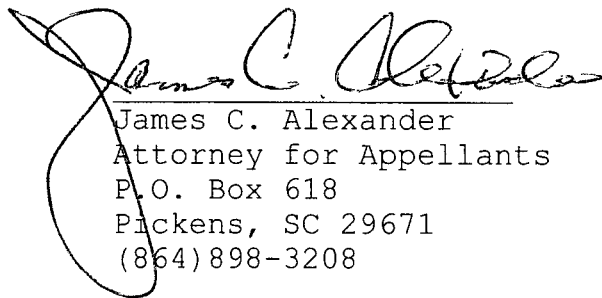 James C. Alexander
James C. Alexander
Attorney for Appellants
P.O. Box 618
Pickens, SC 29671
(864)898-3208